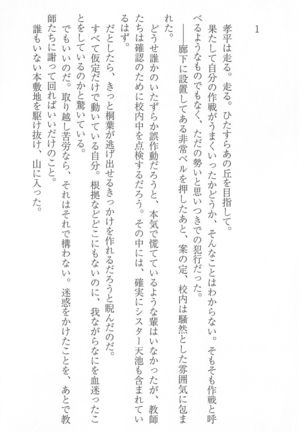 1
孝平は走る。走る。ひたすらあの丘を目指して。
果たして自分の作戦がうまくいったかどうか、そんなことはわからない。そもそも作戦と呼
べるようなものでもなく、ただの勢いと思いつきでの犯行だった。
――廊下に設置してある非常ベルを押したあと、案の定、校内は騒然とした雰囲気に包ま
れた。
どうせ誰かのいたずらか誤作動だろうと、本気で慌てているような輩はいなかったが、教師
たちは確認のために校内中を点検するだろう。その中には、確実にシスター天池も含まれてい
るはず。
だとしたら、きっと桐葉が逃げ出せるきっかけを作れるだろうと睨んだのだ。
すべて仮定だけで動いている自分。根拠などどこにもないのに、我ながらなにを血迷ったこ
とをしているのかと驚いている。
でもいいのだ。取り越し苦労なら、それはそれで構わない。迷惑をかけたことを、あとで教
師たちに謝って回ればいいだけのこと。
誰もいない本敷地を駆け抜け、山に入った。